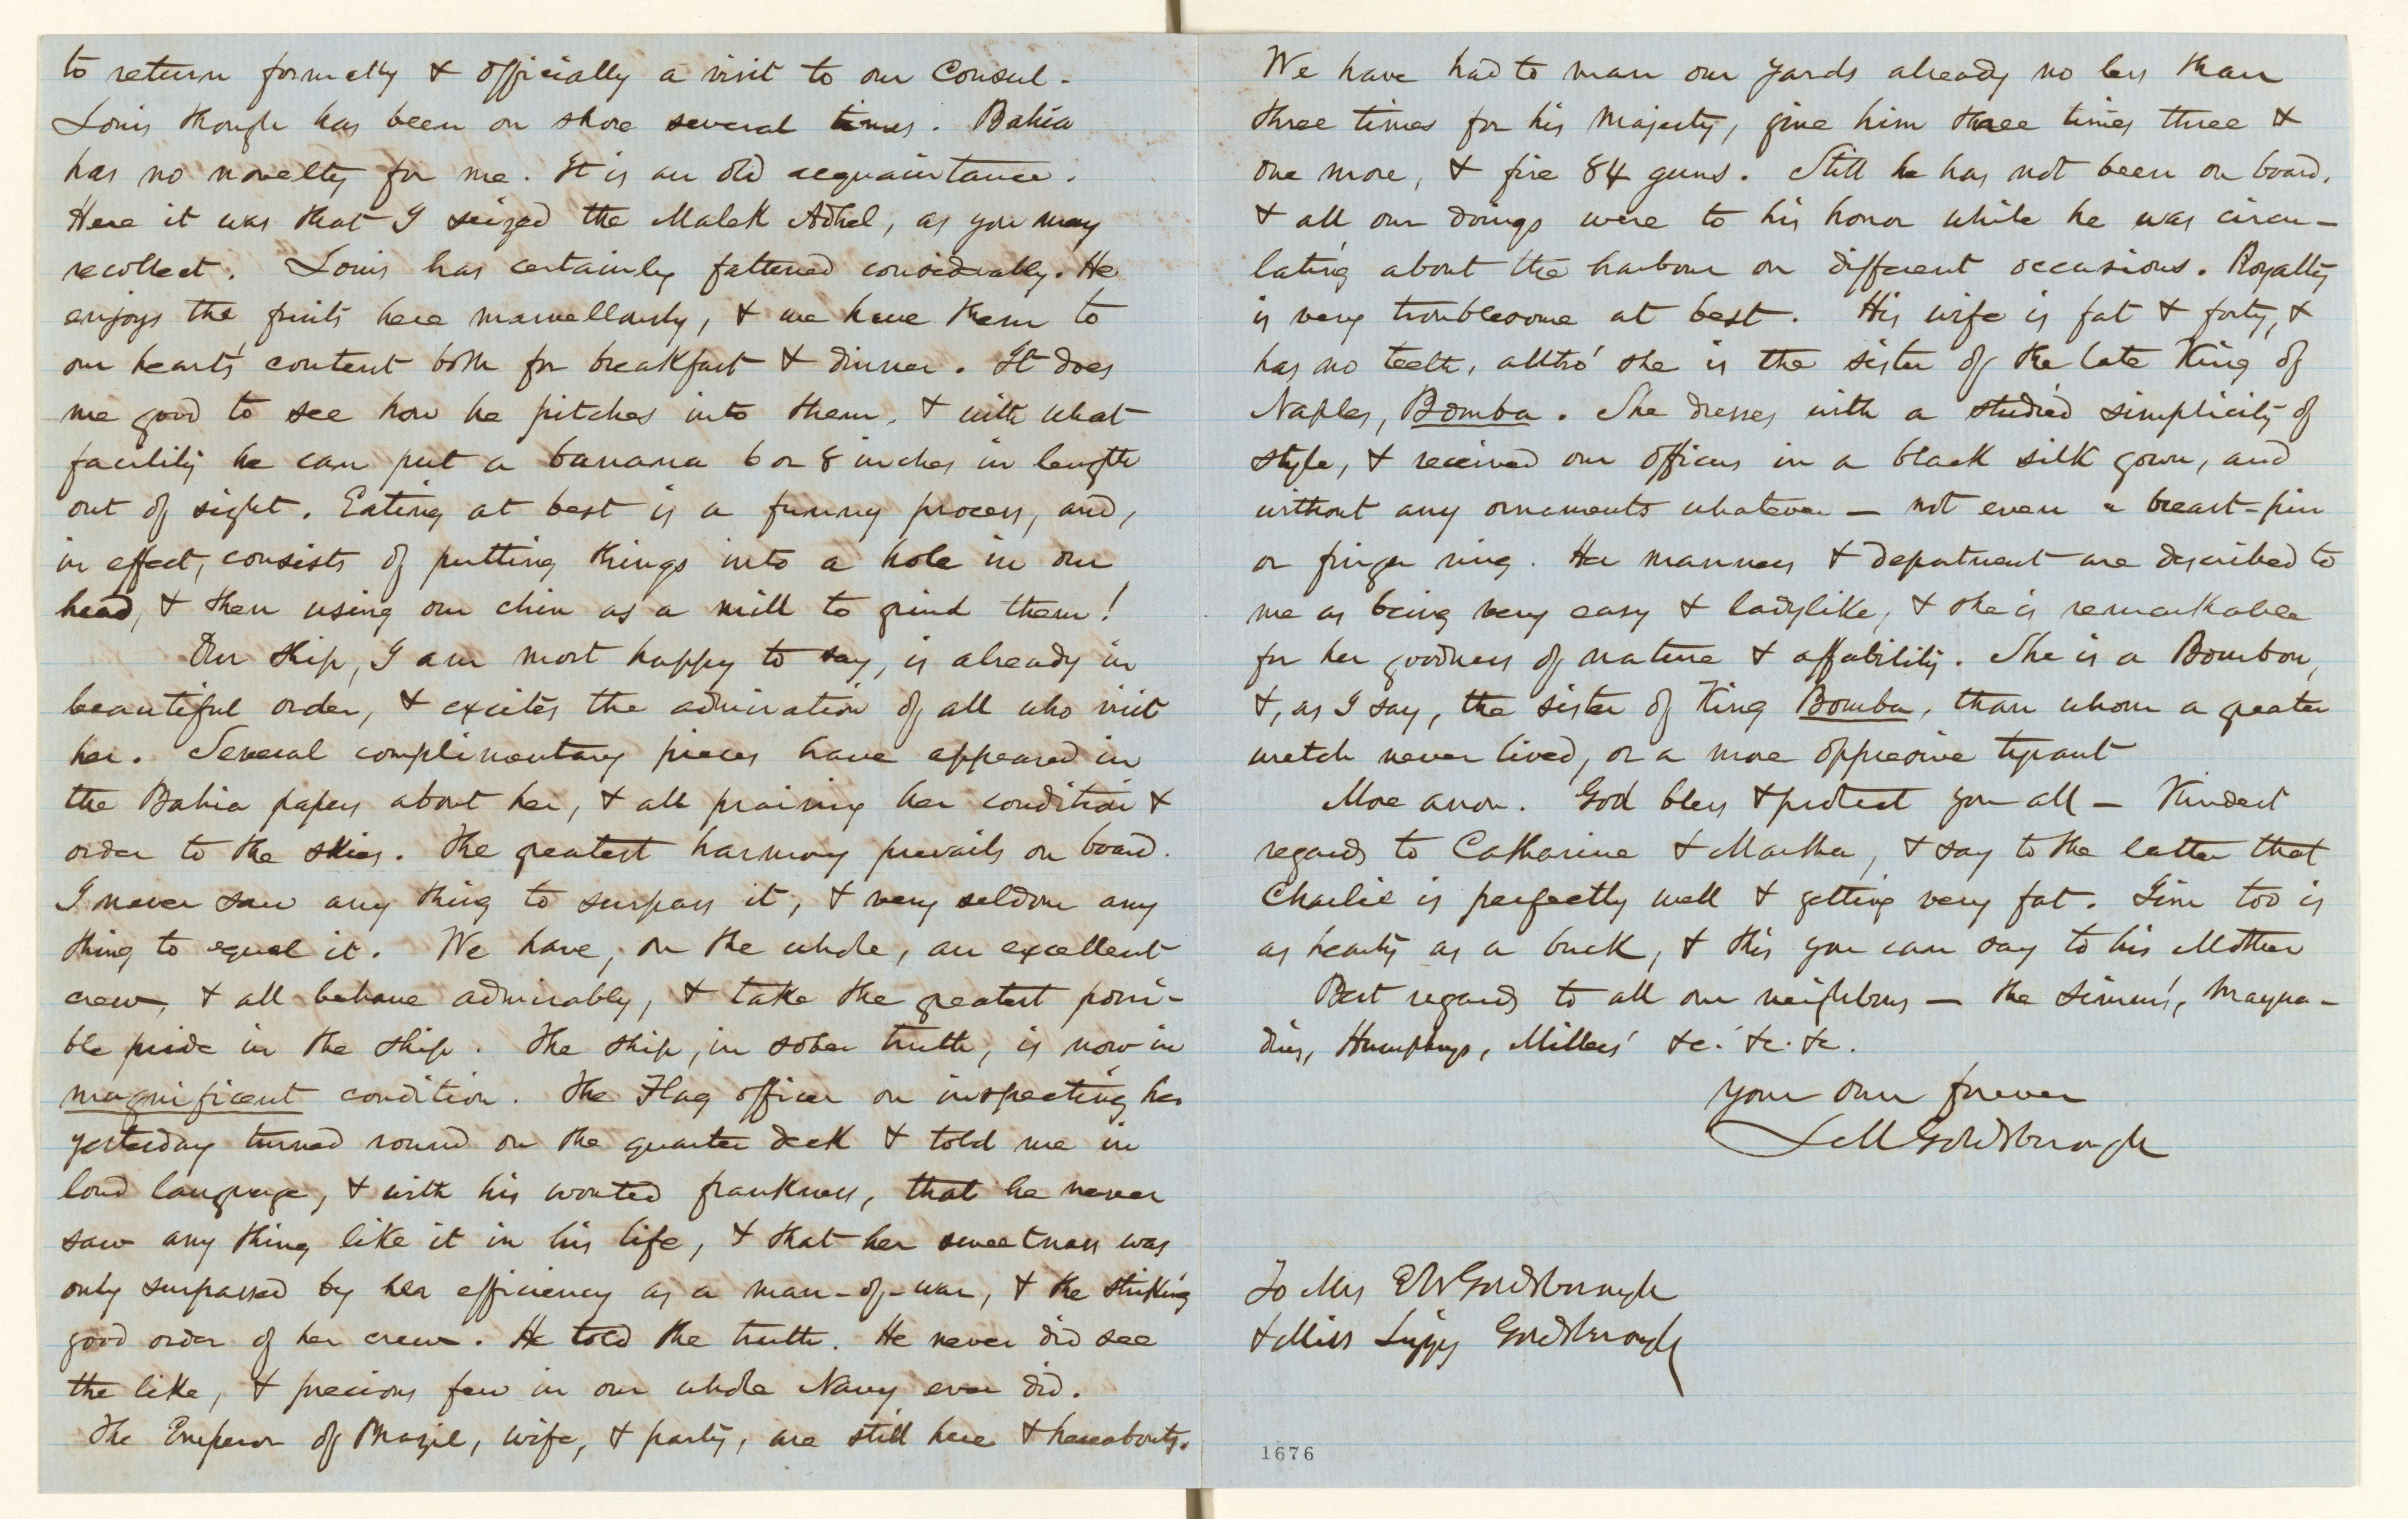 to return formally & officially a visit to our Consul.
Louis though has been on shore several times. Bahia
has no novelty for me. It is an old acquaintance.
Here it was that I seized the Malek Adhel, as you may
recollect. Louis has certainly fattened considerably. He
enjoys the fruits here marvellously, & we have them to
our hearts' content both for breakfast & dinner. It does
me good to see how he pitches into them, & with what
facility he can put a banana 6 or 8 inches in length
out of sight. Eating at best is a funny process, and,
in effect, consists of putting things into a hole in our
head, & then using our chin as a mill to grind them!
Our ship, I am most happy to say, is already in
beautiful order, & excites the admiration of all who visit
her. Several complimentary pieces have appeared in
the Bahia papers about her, & all praising her condition &
order to the skies. The greatest harmony prevails on board.
I never saw any thing to surpass it, & very seldom any
thing to equal it. We have, on the whole, an excellent
crew, & all behave admirably, & take the greatest possi-
ble pride in the ship. The ship, in sober truth, is now in
magnificent condition. The Flag officer on inspecting her
yesterday turned round on the quarter deck & told me in
loud language, & with his wonted frankness, that he never
saw any thing like it in his life, & that her sweetness was
only surpassed by her efficiency as a man-of-war, & the striking
good order of her crew. He told the truth. He never did see
the like, & precious few in our whole Navy ever did.
The Emperor of Brazil, wife, & party, are still here & hereabouts.
We have had to man our yards already no less than
three times for his Majesty, give him three times three &
one more, & fire 84 guns. Still he has not been on board,
& all our doings were to his honor while he was circu-
lating about the harbour on different occasions. Royalty
is very troublesome at best. His wife is fat & forty, &
has no teeth, altho' she is the sister of the late King of
Naples, Bomba. She dresses with a studied simplicity of
style, & received our officers in a black silk gown, and
without any ornaments whatever — not even a breast-pin
or finger ring. Her manners & deportment are described to
me as being very easy & ladylike, & she is remarkable
for her goodness of nature & affability. She is a Bourbon,
&, as I say, the sister of King Bomba, than whom a greater
wretch never lived, or a more oppressive tyrant
More anon. God bless & protect you all — Kindest
regards to Catharine & Martha, & say to the latter that
Charlie is perfectly well & getting very fat. Jim too is
as hearty as a buck, & this you can say to his Mother
Best regards to all our neighbors — the Simms', Mayna-
diers, Humphreys, Millers' &c. &c. &c.
Your own forever
L M Goldsborough
To Mrs E W Goldsborough
& Miss Lizzy Goldsborough
1676